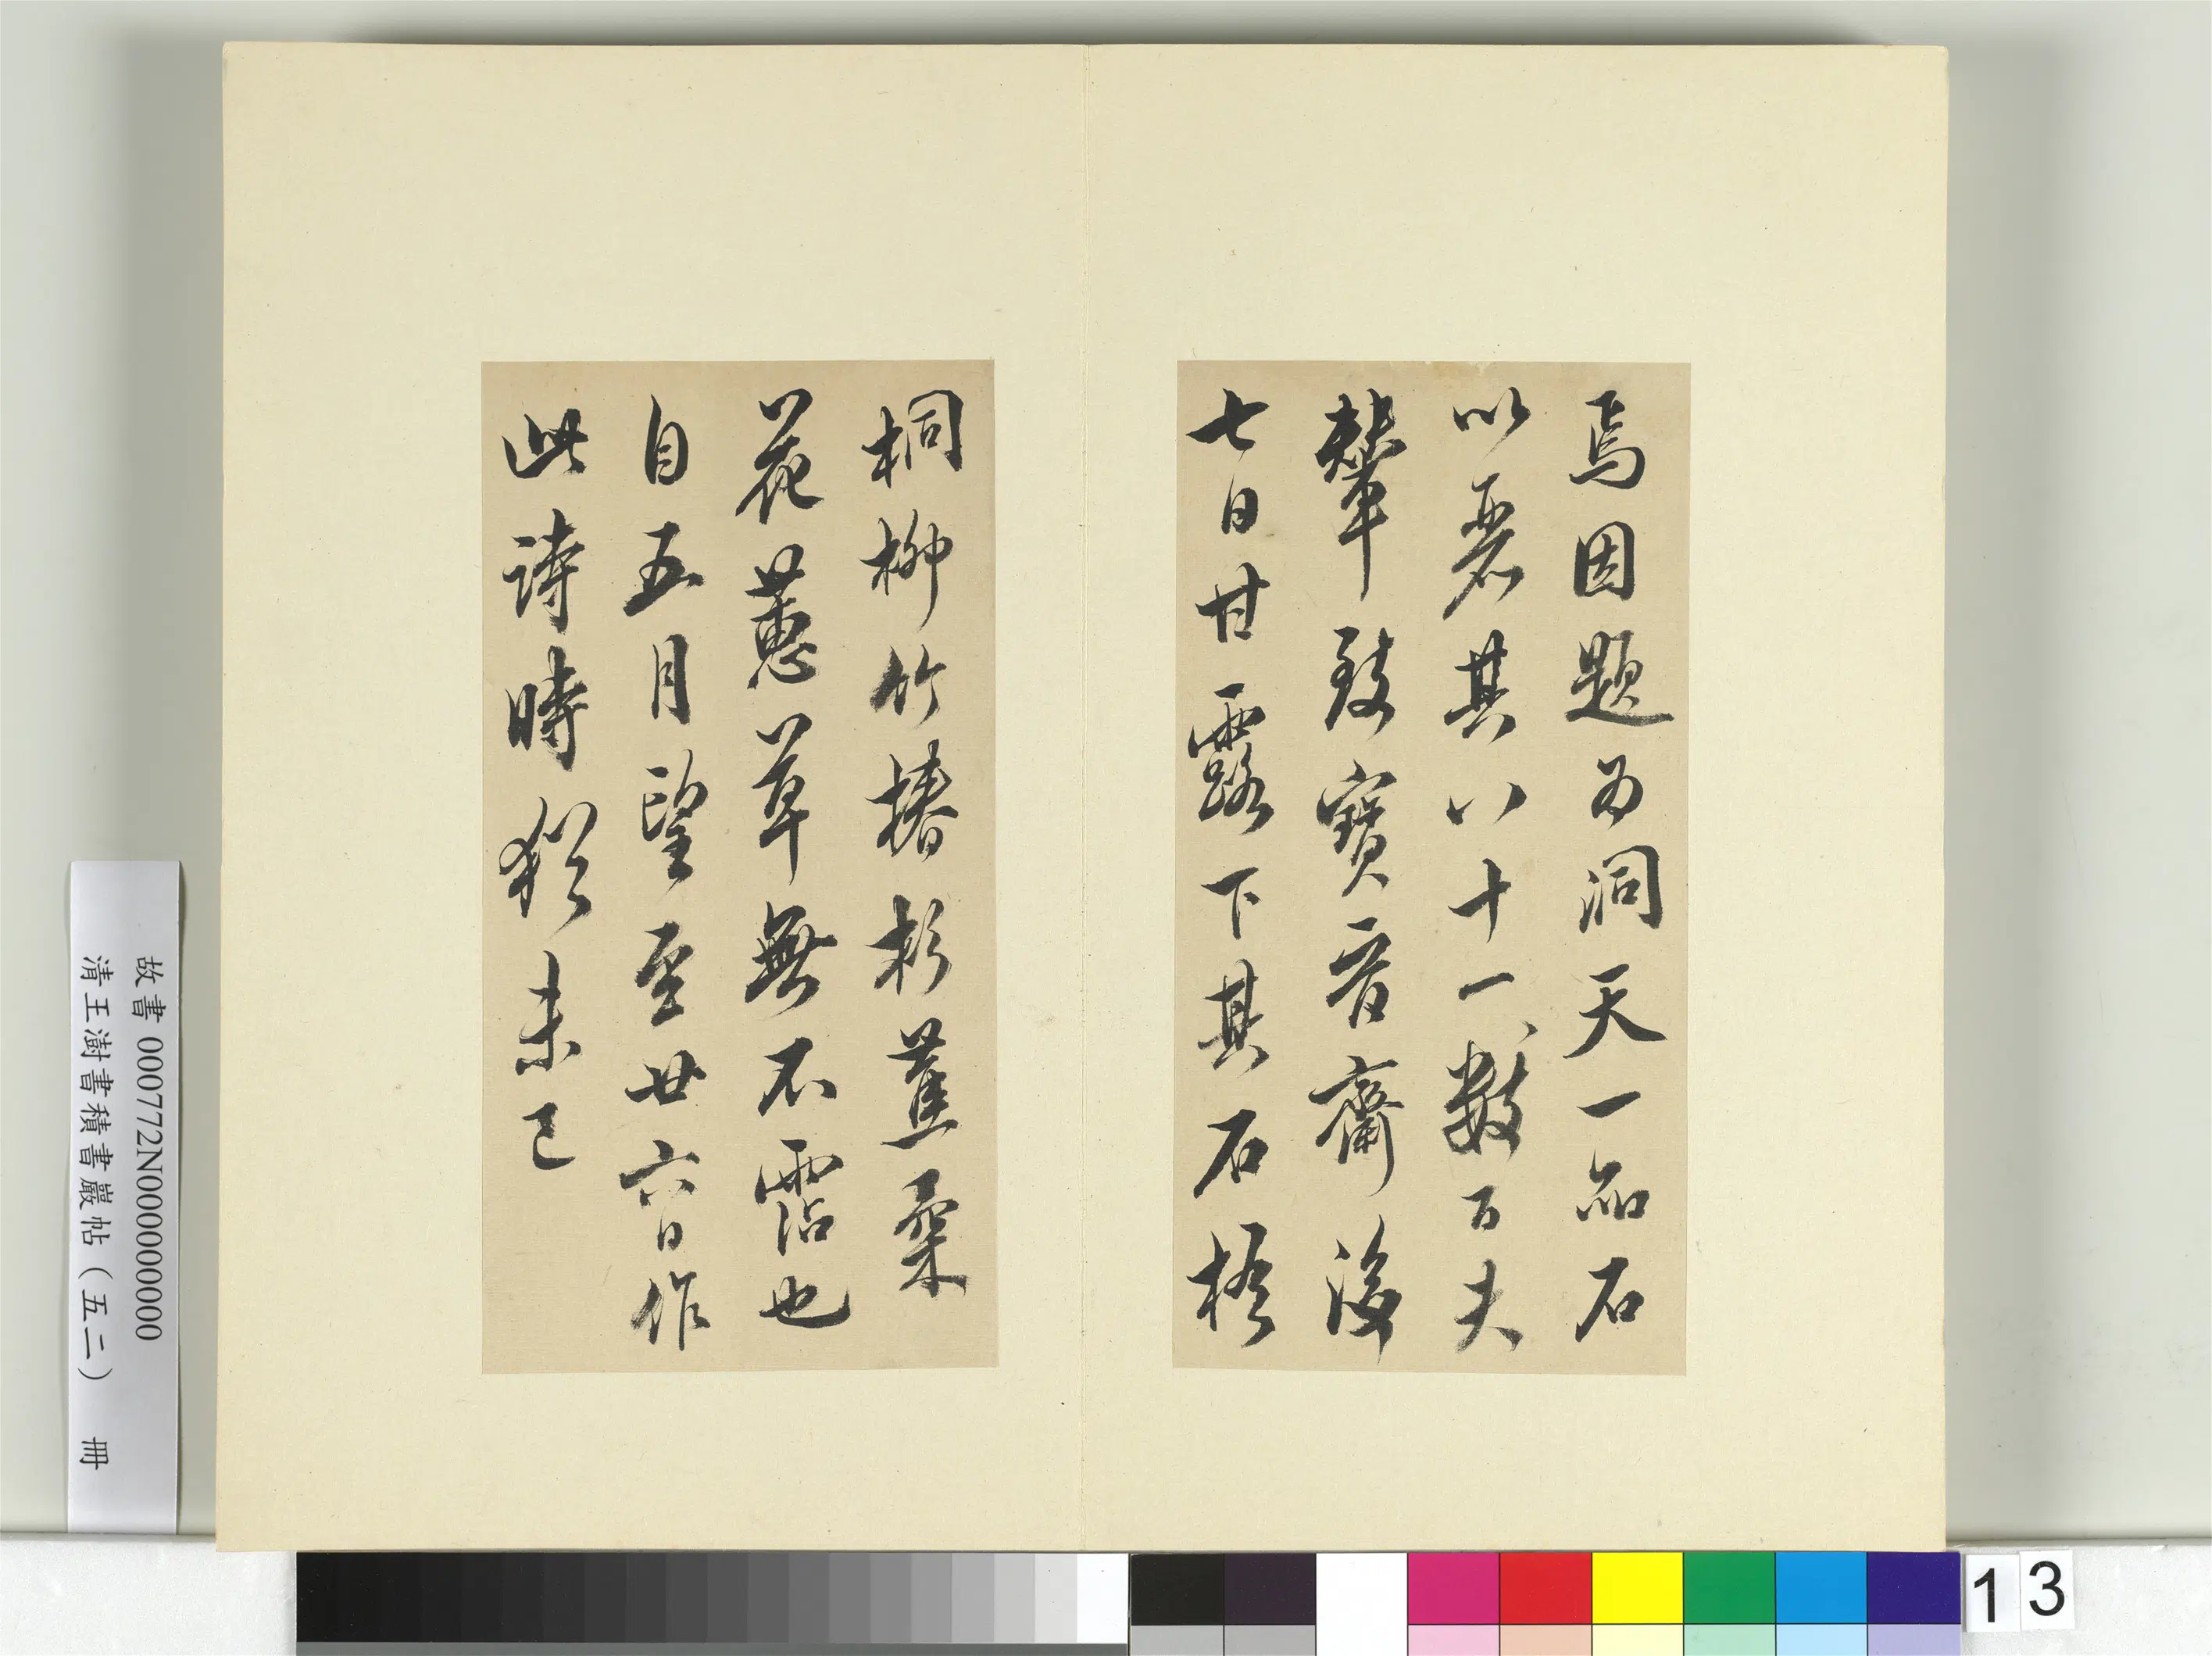 焉因題为洞天一品石
以丞其八十一數百夫
輦致寶晉齋後
七日甘露下其石梧
桐柳竹椿杉蕉桑
花蕙草無不霑也
自五月望至廿六日作
此詩時猶未已
故書 000772N000000000
清王澍書積書巖帖（五二） 冊
13